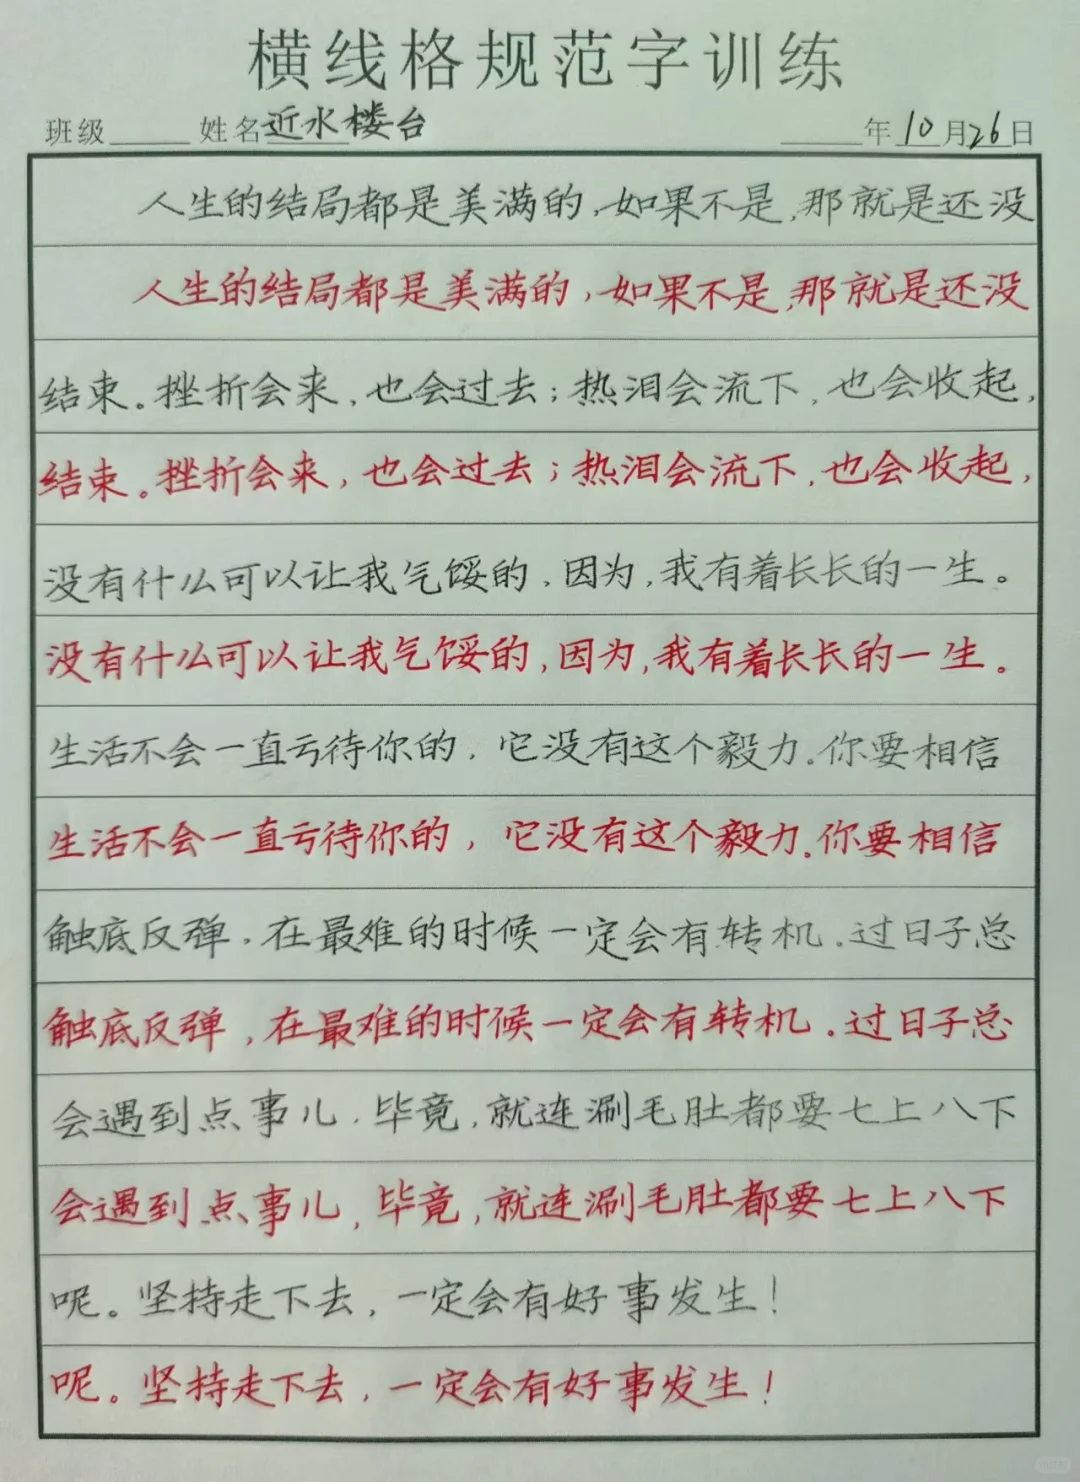 横线格规范字训练
班级 姓名近水楼台 年10月26日
人生的结局都是美满的,如果不是,那就是还没
人生的结局都是美满的,如果不是,那就是还没
结束。挫折会来,也会过去;热泪会流下,也会收起,
结束。挫折会来,也会过去;热泪会流下,也会收起,
没有什么可以让我气馁的,因为,我有着长长的一生。
没有什么可以让我气馁的,因为,我有着长长的一生。
生活不会一直亏待你的,它没有这个毅力。你要相信
生活不会一直亏待你的,它没有这个毅力。你要相信
触底反弹,在最难的时候一定会有转机。过日子总
触底反弹,在最难的时候一定会有转机。过日子总
会遇到点事儿,毕竟,就连涮毛肚都要七上八下
会遇到点事儿,毕竟,就连涮毛肚都要七上八下
呢。坚持走下去,一定会有好事发生!
呢。坚持走下去,一定会有好事发生!